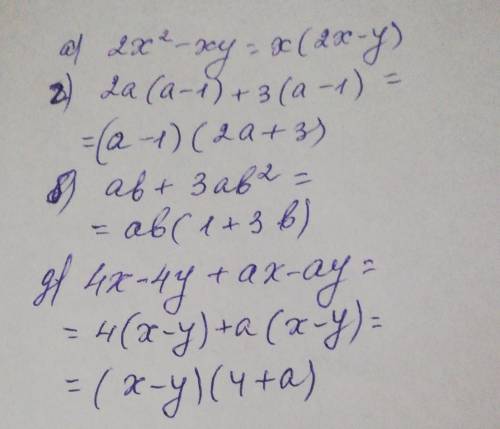 а) 2x² - xy = x(2x - y)
г) 2a(a-1) + 3(a-1) =
= (a-1)(2a+3)
б) ab + 3ab² =
= ab(1+3b)
д) 4x-4y + ax-ay =
= 4(x-y)+a(x-y)=
= (x-y)(4+a)